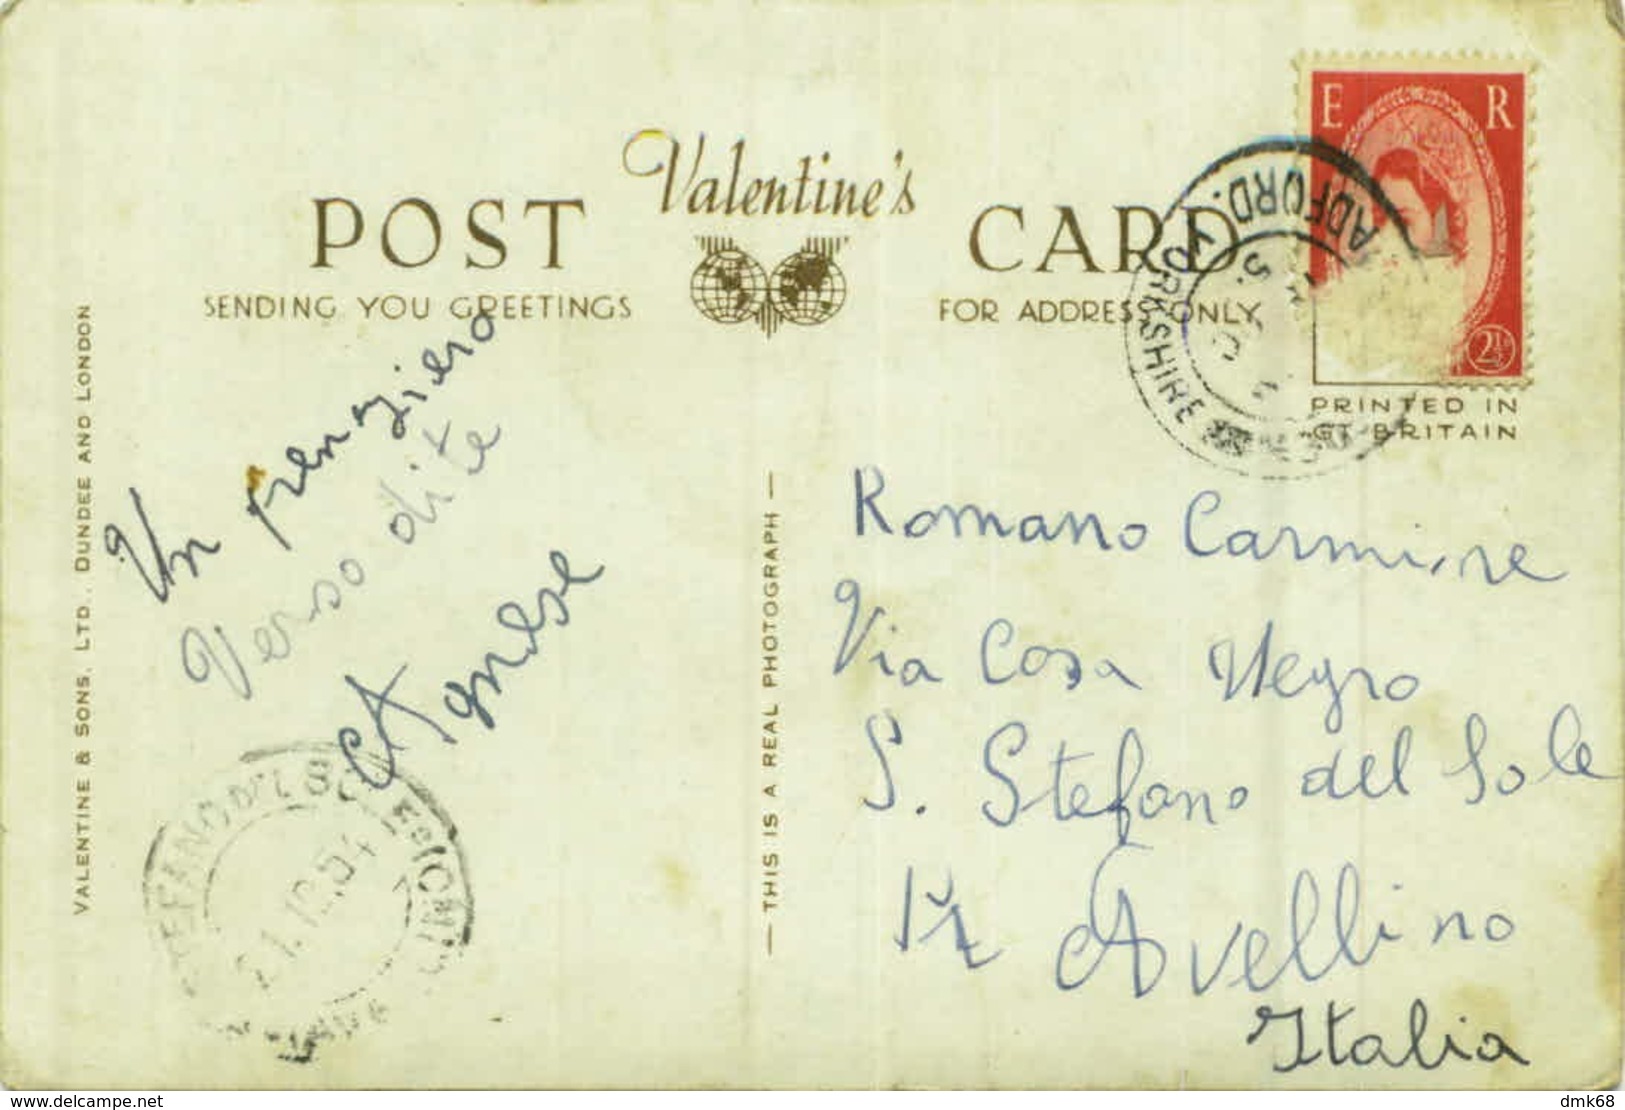 POST Valentine's CARD
SENDING YOU GREETINGS
FOR ADDRESS ONLY
E R
2½
ADFORD. YORKSHIRE
PRINTED IN
GT. BRITAIN
VALENTINE & SONS, LTD., DUNDEE AND LONDON
— THIS IS A REAL PHOTOGRAPH —
Un penziero
Verso di te
Agnese
STEFANO DEL SOLE
21.12.54
Romano Carmine
Via Casa Negro
S. Stefano del Sole
Avellino
Italia
www.delcampe.net
dmk68